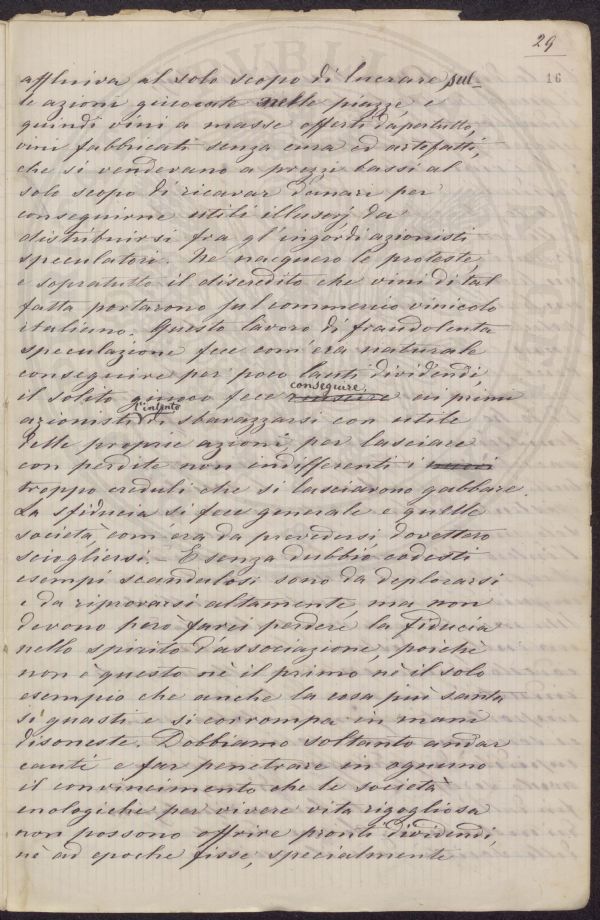 29
16
affluiva al solo scopo di lucrare sul-
le azioni giuocate nelle piazze, e
quindi vini a masse offerti dapertutto,
vini fabbricati senza cura ed artefatti,
che si venderano a prezzi bassi al
solo scopo di ricavar danari per
conseguirne utili illusorj da
distribuirsi fra gl'ingordi azionisti
speculatori. Ne nacquero le proteste,
e sopratutto il discredito che vini di tal
fatta portarono sul commercio vinicolo
italiano. Questo lavoro di fraudolenta
speculazione fece com'era naturale
conseguire per poco lauti dividendi,
il solito giuoco fece conseguire ai primi
azionisti l'intento di sbarazzarsi con utile
delle proprie azioni per lasciare
con perdite non indifferenti i
troppo creduli che si lasciarono gabbare.
La sfiducia si fece generale e quelle
società com'era da prevedersi dovettero
sciogliersi. - E senza dubbio codesti
esempi scandalosi sono da deplorarsi
e da riprovarsi altamente, ma non
devono però farci perdere la fiducia
nello spirito d'associazione, poichè
non è questo nè il primo nè il solo
esempio che anche la cosa più santa
si guasti e si corrompa in mani
disoneste. Dobbiamo soltanto andar
cauti e far penetrare in ognuno
il convincimento che le società
enologiche per vivere vita rigogliosa
non possono offrire pronti dividendi,
nè ad epoche fisse, specialmente